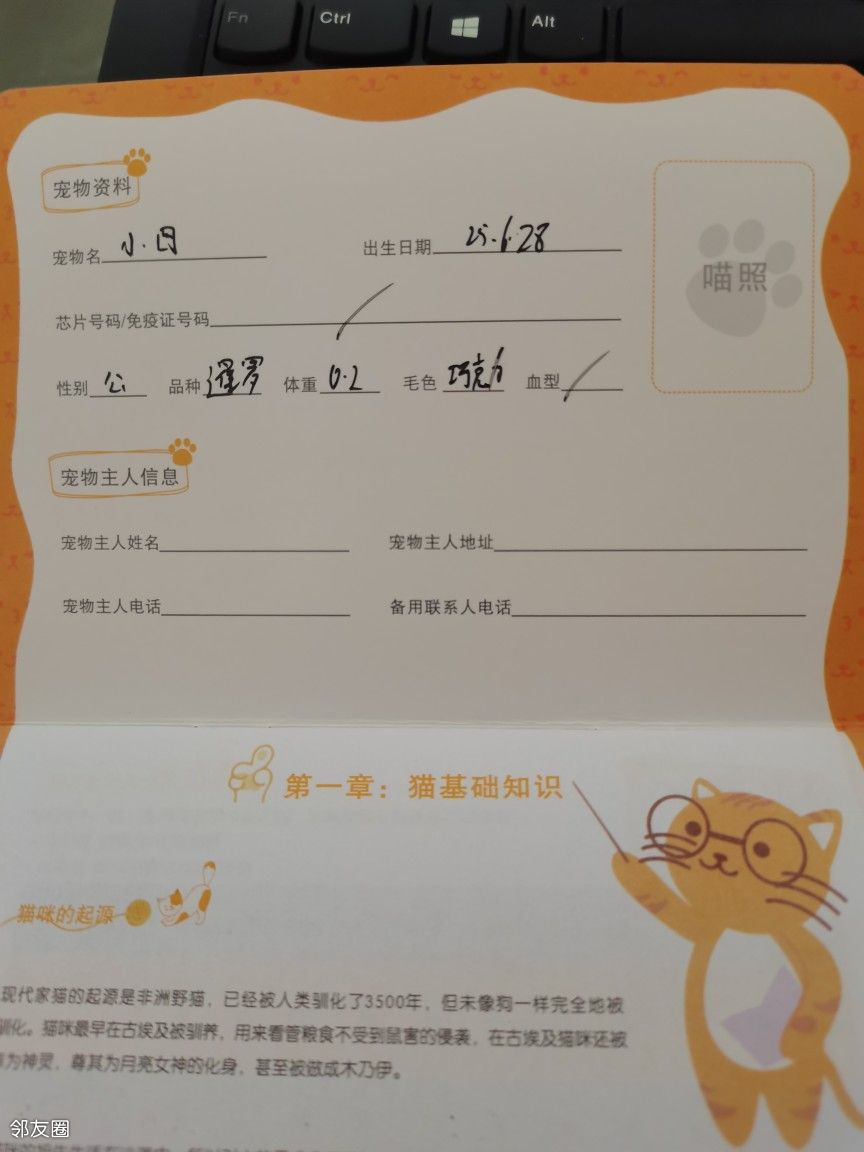 Fn Ctrl Alt
宠物资料
宠物名 小·因 出生日期 25.6.28
喵照
芯片号码/免疫证号码 /
性别 公 品种 暹罗 体重 0.2 毛色 巧克力 血型 /
宠物主人信息
宠物主人姓名 宠物主人地址
宠物主人电话 备用联系人电话
第一章：猫基础知识
猫咪的起源
现代家猫的起源是非洲野猫，已经被人类驯化了3500年，但未像狗一样完全地被
驯化。猫咪最早在古埃及被驯养，用来看管粮食不受到鼠害的侵袭，在古埃及猫咪还被
为神灵，尊其为月亮女神的化身，甚至被做成木乃伊。
邻友圈